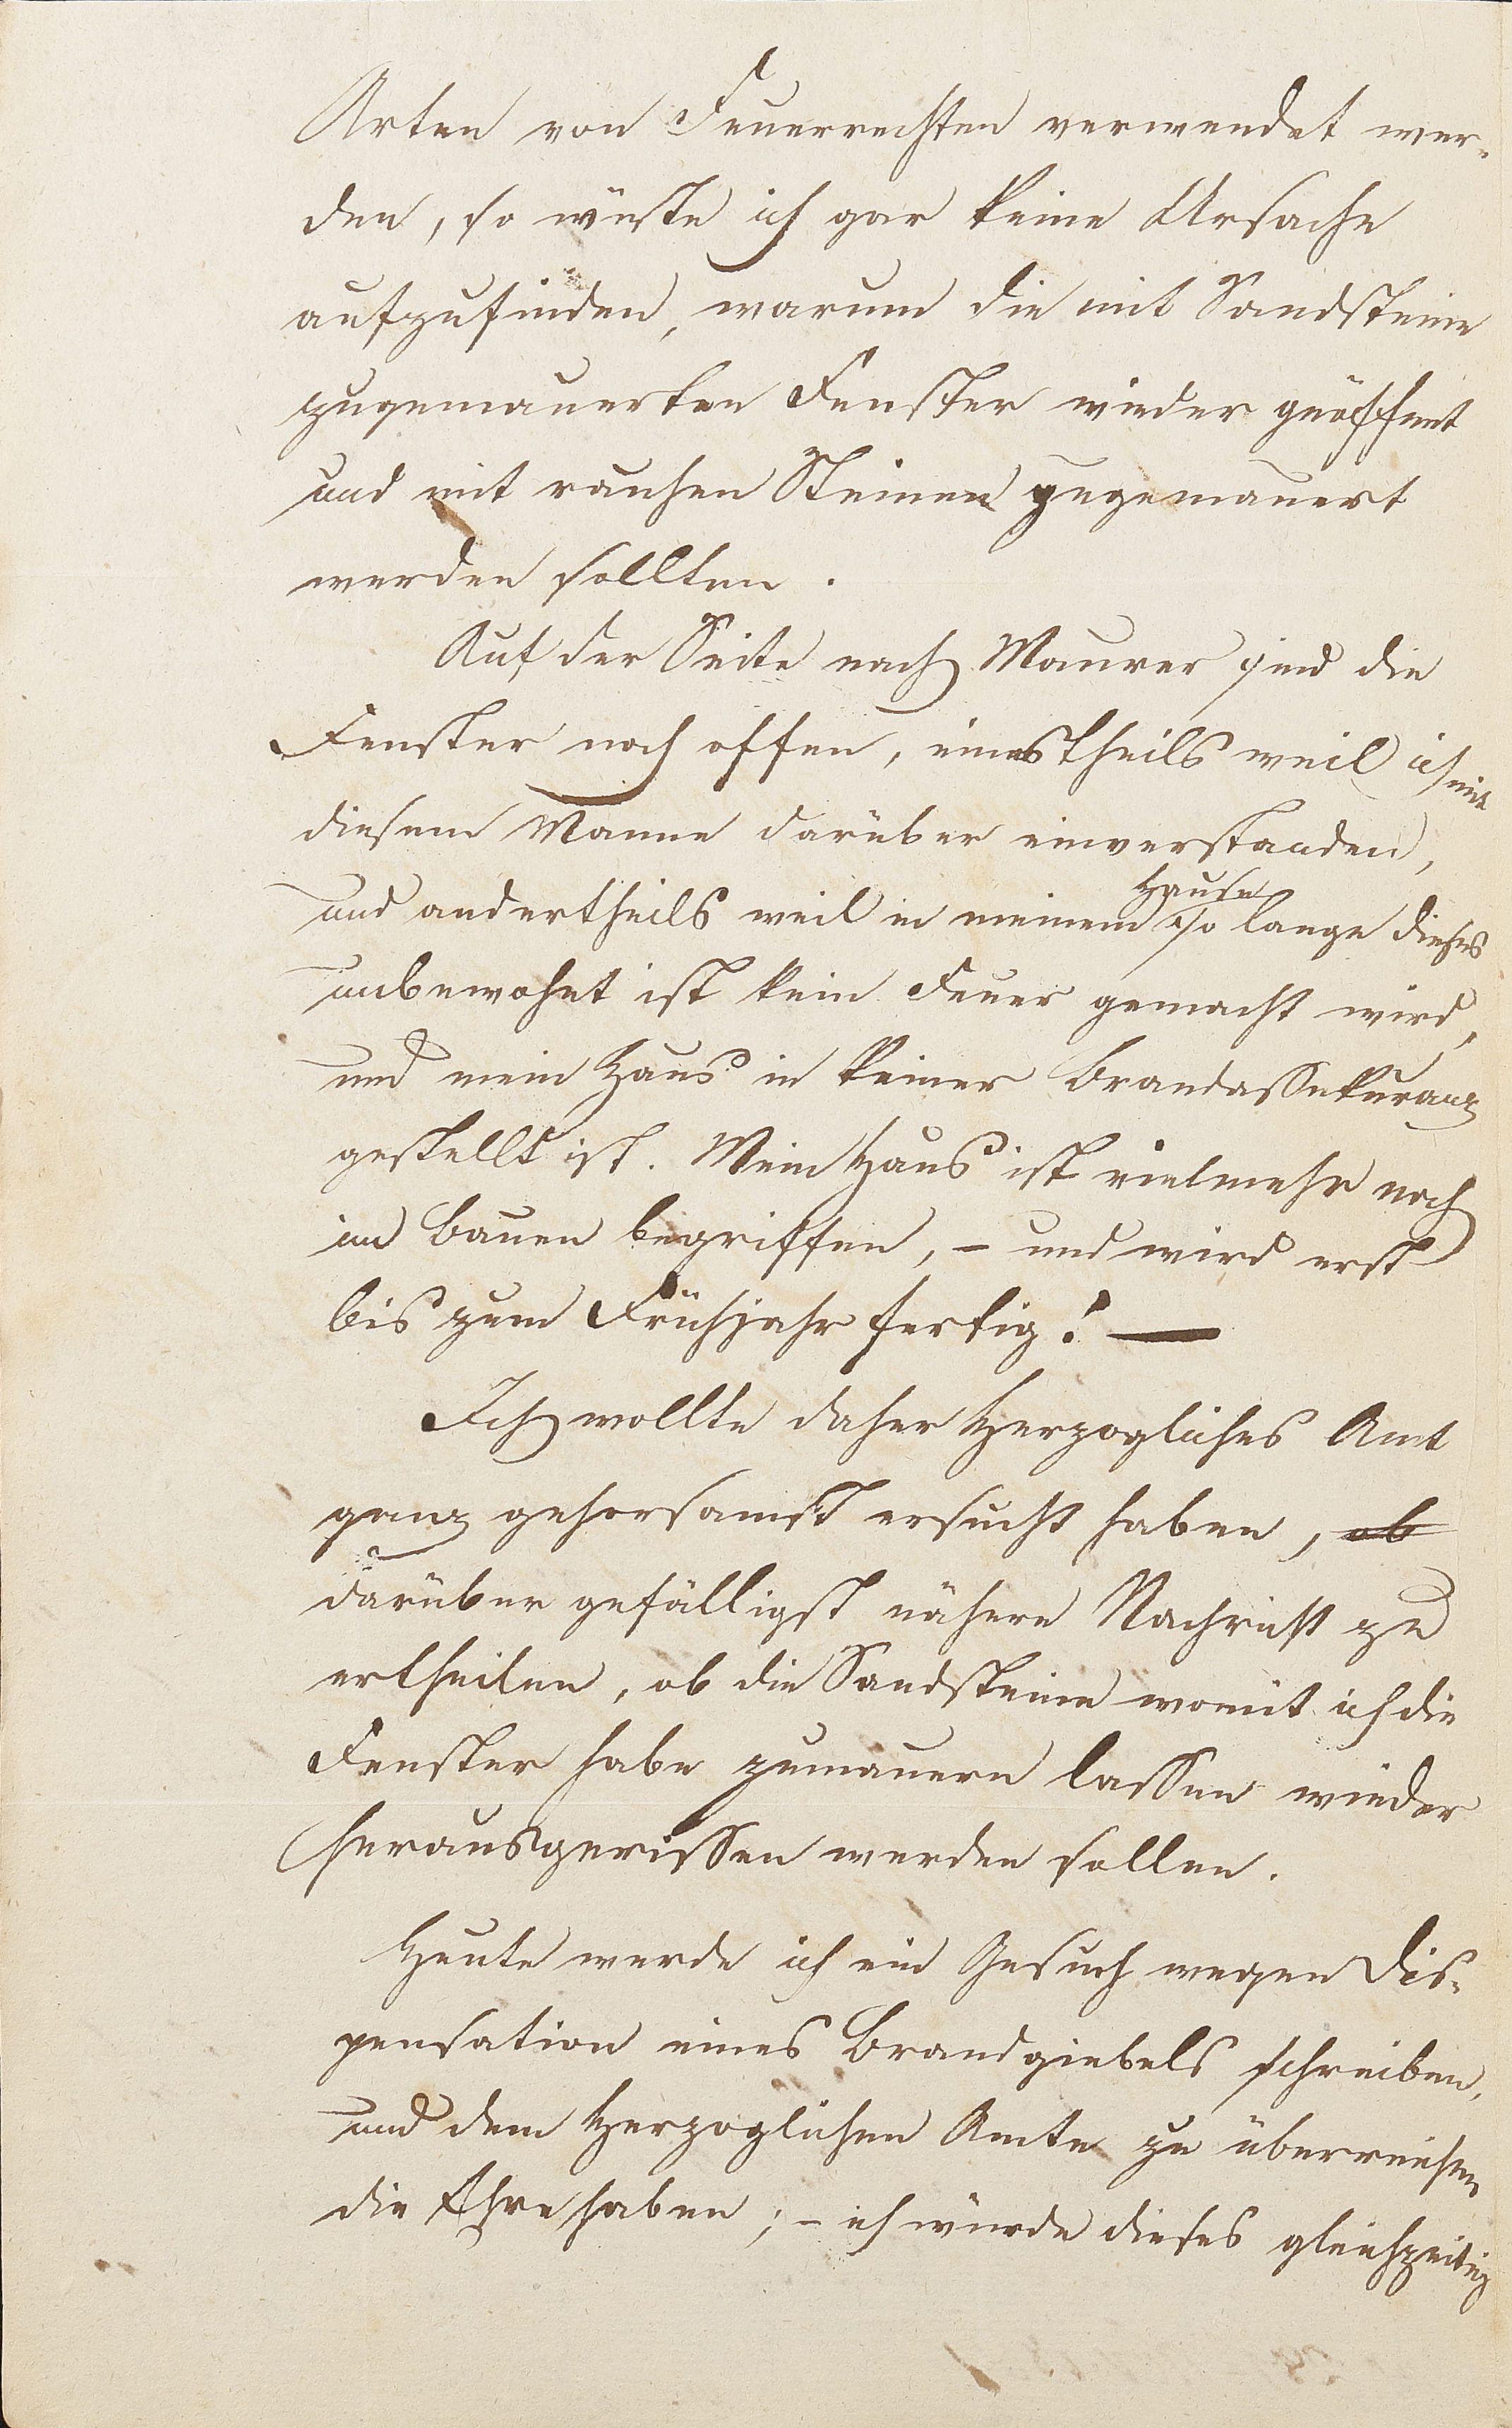 Arten von Feuerrechten verwendet wer-
den, so wüste ich gar keine Ursache
aufzufinden, warum die mit Sandsteine
zugemauerten Fenster wieder geöffnet
und mit rauhen Steinen zugemauert
werden sollten.
Auf der Seite nach Maurer sind die
Fenster noch offen, einestheils weil ich mit
diesem Manne darüber einverstanden,
Hause
und andertheils weil in meinem so lange dieses
unbewohnt ist kein Feuer gemacht wird,
und mein Haus in keiner Brandassekuranz
gestellt ist. Mein Haus ist vielmehr noch
im Bauen begriffen, – und wird erst
bis zum Frühjahr fertig! —
Ich wollte daher Herzogliches Amt
ganz gehorsamst ersucht haben, ob
darüber gefälligst nähere Nachricht zu
ertheilen, ob die Sandsteine womit ich die
Fenster habe zumauern lassen wieder
herausgerissen werden sollen.
Heute werde ich ein Gesuch wegen Dis-
pensation eines Brandgiebels schreiben,
und dem Herzoglichen Amte zu überreichen
die Ehre haben; – ich würde dieses gleichzeitig